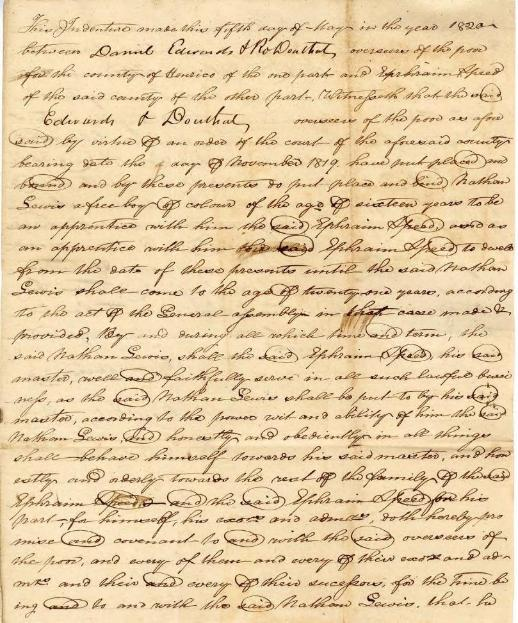 This Indenture made this fifth day of May in the year 1820
between Daniel Edwards & Ro Douthat, overseers of the poor
for the county of Henrico of the one part and Ephraim Speed
of the said county of the other part, Witnesseth that the said
Edwards & Douthat, overseers of the poor as afore
said by virtue of an order of the court of the aforesaid county
bearing date the 4 day of November 1819 have put placed and
bound and by these presents do put place and bind Nathan
Lewis a free boy of colour of the age of sixteen years to be
an apprentice with him the said Ephraim Speed, and as
an apprentice with him the said Ephraim Speed to dwell
from the date of these presents until the said Nathan
Lewis shall come to the age of twenty one years, according
to the act of the General assembly in that case made &
provided, By and during all which time and term, the
said Nathan Lewis, shall the said Ephraim Speed, his said
master, well and faithfully serve in all such lawful busi
ness, as the said Nathan Lewis shall be put to by his said
master, according to the power wit and ability of him the said
Nathan Lewis And honestly and obediently in all things
shall behave himself towards his said master, and hon
estly and orderly towards the rest of the family of the said
Ephraim Speed and the said Ephraim Speed for his
part for himself, his exors and admrs, doth hereby pro
mise and covenant to and with the said overseers of
the poor, and every of them and every of their exors and ad-
mrs and their and every of their sucessors, for the time be
ing and to and with the said Nathan Lewis, that he